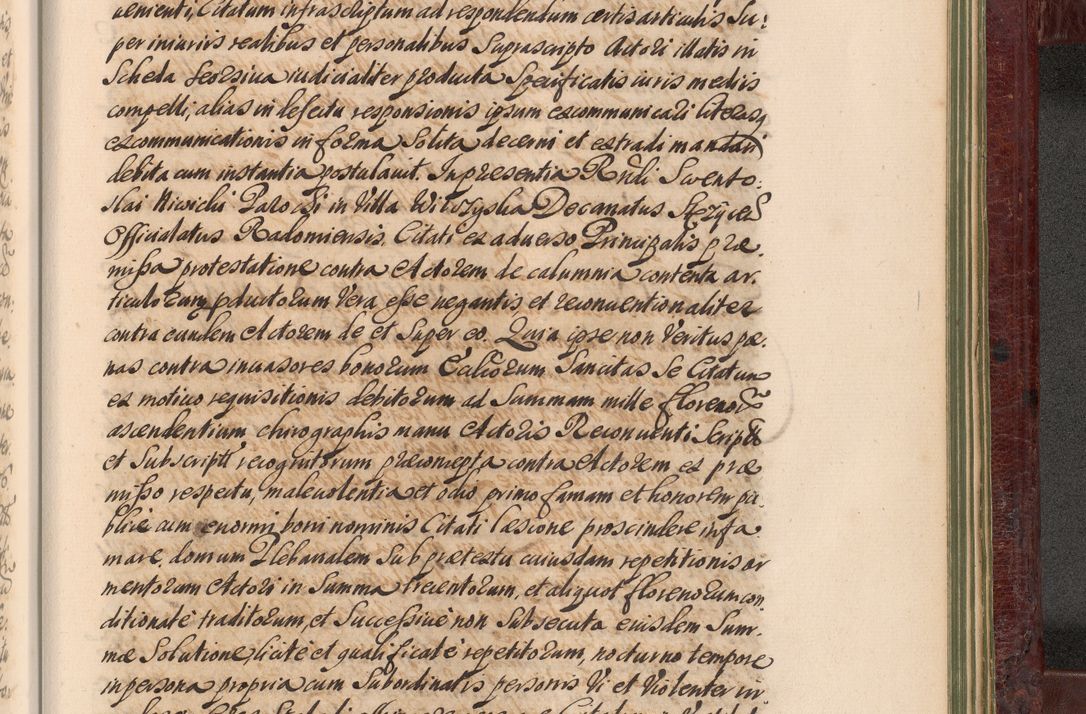 uenienti, Citatum infrascriptum ad respondendum certis articulis Su-
per iniuriis realibus et personalibus Suprascripto Actori illatis in
Scheda seorsiua iudicialiter producta Specificatis iuris mediis
compelli, alias in defectu responsionis ipsum excommunicari literasq
excommunicationis in forma Solita decerni et extradi mandari
debita cum instantia postulauit. In presentia Rndi Swento-
slai Parochi in Villa Decanatus
Officialatus Radomiensis, Citati ex aduerso Principalis præ-
missa protestatione contra Actorem de calumnia contenta ar-
ticulorum pductorum Vera esse negantis, et reconuentionaliter
contra eundem Actorem de et Super eo. Quia ipse non Veritus pæ-
nas contra inuasores bonorum Ecclicorum Sancitas Se Citatum
ex motiuo requisitionis debitorum ad Summam mille florenorū
ascendentium chirographis manu Actoris Reconuenti Scripti
et Subscripti recognitorum præconcepta contra Actorem ex præ
misso respectu, maleuolentia et odio primo famam et honorem pu-
blice cum enormi boni nominis Citati læsione proscindere infa-
mare, domum Plebanalem Sub prætextu cuiusdam repetitionis ar
mentorum Actori in Summa trecentorum, et aliquot florenorum con-
ditionate traditorum, et Successiue non Subsecuta eiusdem Sum-
mæ Solutione, licite et qualificate repetitorum, nocturno tempore
in persona propria cum Subordinatis personis Vi et Violenter in